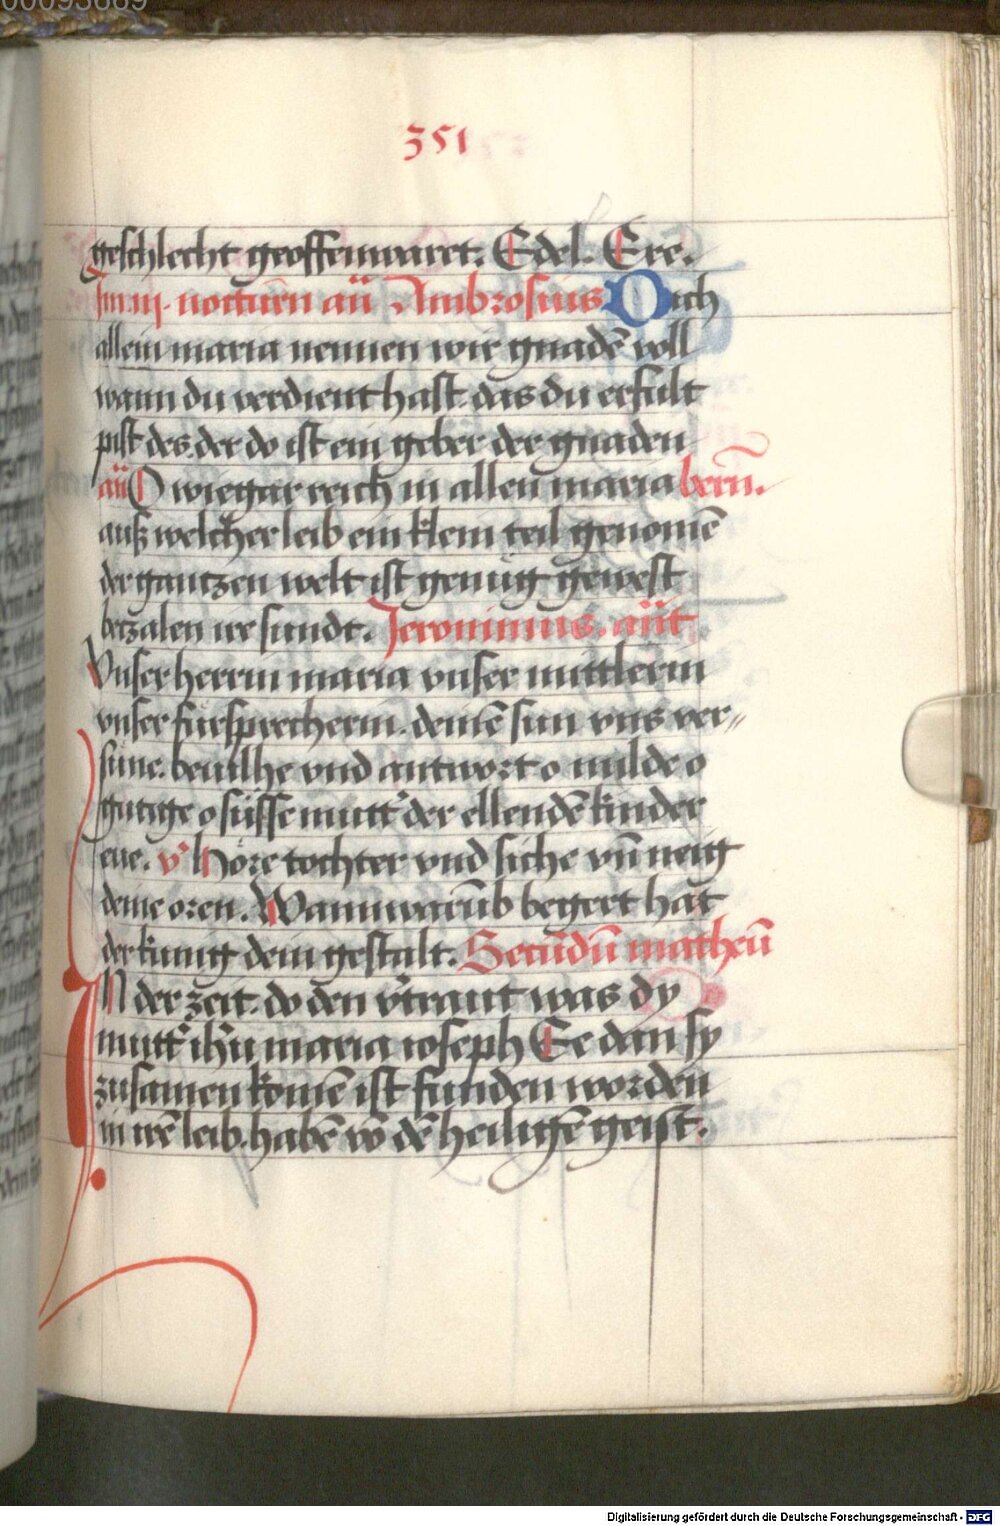 00093669
351
geschlecht geoffenwaret. Edel. Ere.
Im iij. notturn an̄ Ambrosius Dich
allein maria nennen wir gnadē voll
wann du verdient hast das du erfult
pist des der do ist ein geber der gnaden
an̄ O wie gar reich in allen maria bern̄.
auß welcher leib ein klein teil genomē
der gantzen welt ist genug gewest
bezalen ire sundt. Jeronimus. an̄t
Vnser herrin maria vnser mittlerin
vnser fürsprecherin. deinē sun vns ver⸗
süne. beuilhe vnd antwort o milde o
gutige o süsse mutt' der ellendē kinder
eue. v' Höre tochter vnd siche vn̄ neig
deine oren. Wann warūb begert hat
der kunig dein gestalt. Secūdū matheū
IN der zeit. do den v'traut was dy
mutt' ih̄u maria ioseph Ee dan sy
zusamen komē ist funden worden
in irē leib. habē vō dē heiligē geist.
Digitalisierung gefördert durch die Deutsche Forschungsgemeinschaft - DFG